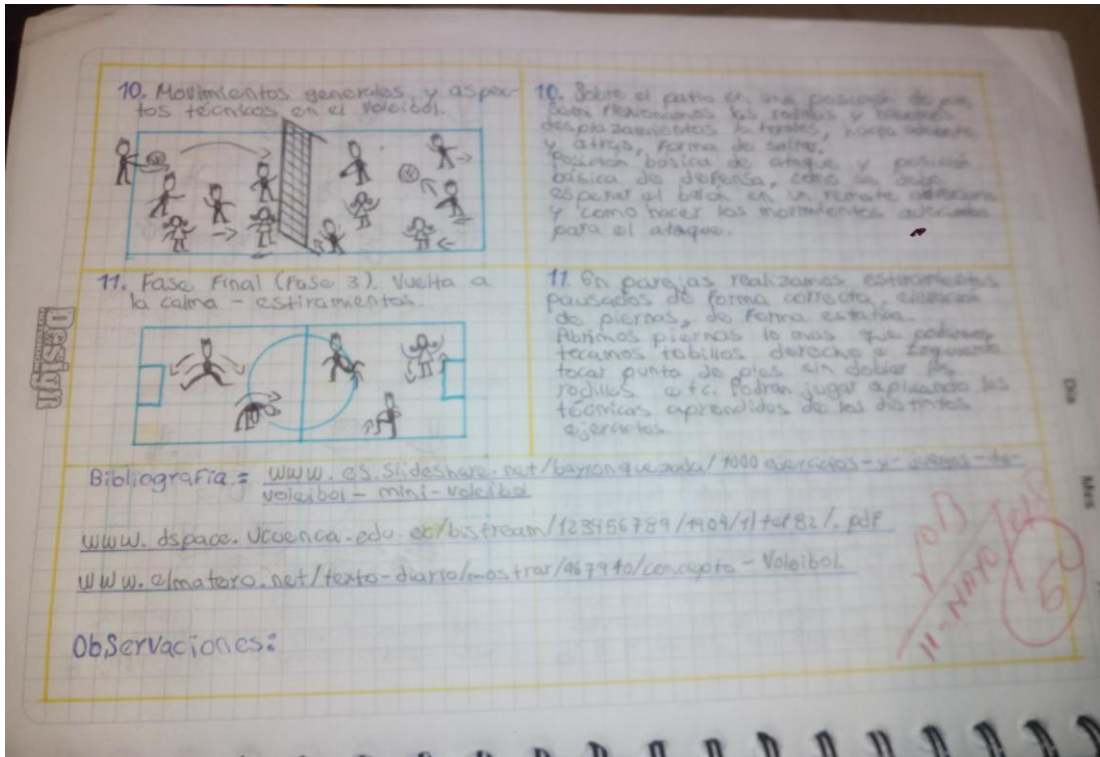 10. Movimientos generales y aspec-
tos técnicos en el voleibol.
10. Sobre el patio en una posición de pie
Semi flexionamos las rodillas y hacemos
desplazamientos laterales, hacia adelante
y atrás, forma de saltar.
Posición básica de ataque y posición
básica de defensa, como se debe
esperar el balón en un remate
y como hacer los movimientos adecuados
para el ataque.
11. Fase Final (Fase 3). Vuelta a
la calma - estiramentos.
11. En parejas realizamos estiramientos
pausados de forma correcta, elevación
de piernas, de forma estatica.
Abrimos piernas lo mas que podamos,
tocamos tobillos derecho e Izquierdo
tocar punta de pies sin doblar las
rodillas etc. Podran jugar aplicando las
técnicas aprendidas de los distintos
ejercicios.
Design
Bibliografia = www.es.slideshare.net/bayronquezada/1000 ejercicios-y-juegos-de-
voleibol-mini-voleibol
www.dspace.ucuenca.edu.ec/bistream/123456789/1904/1/tef82/.pdf
www.elmatero.net/texto-diario/mostrar/467940/concepto-Voleibol.
Observaciones:
Dia
Mes
11-MAYO